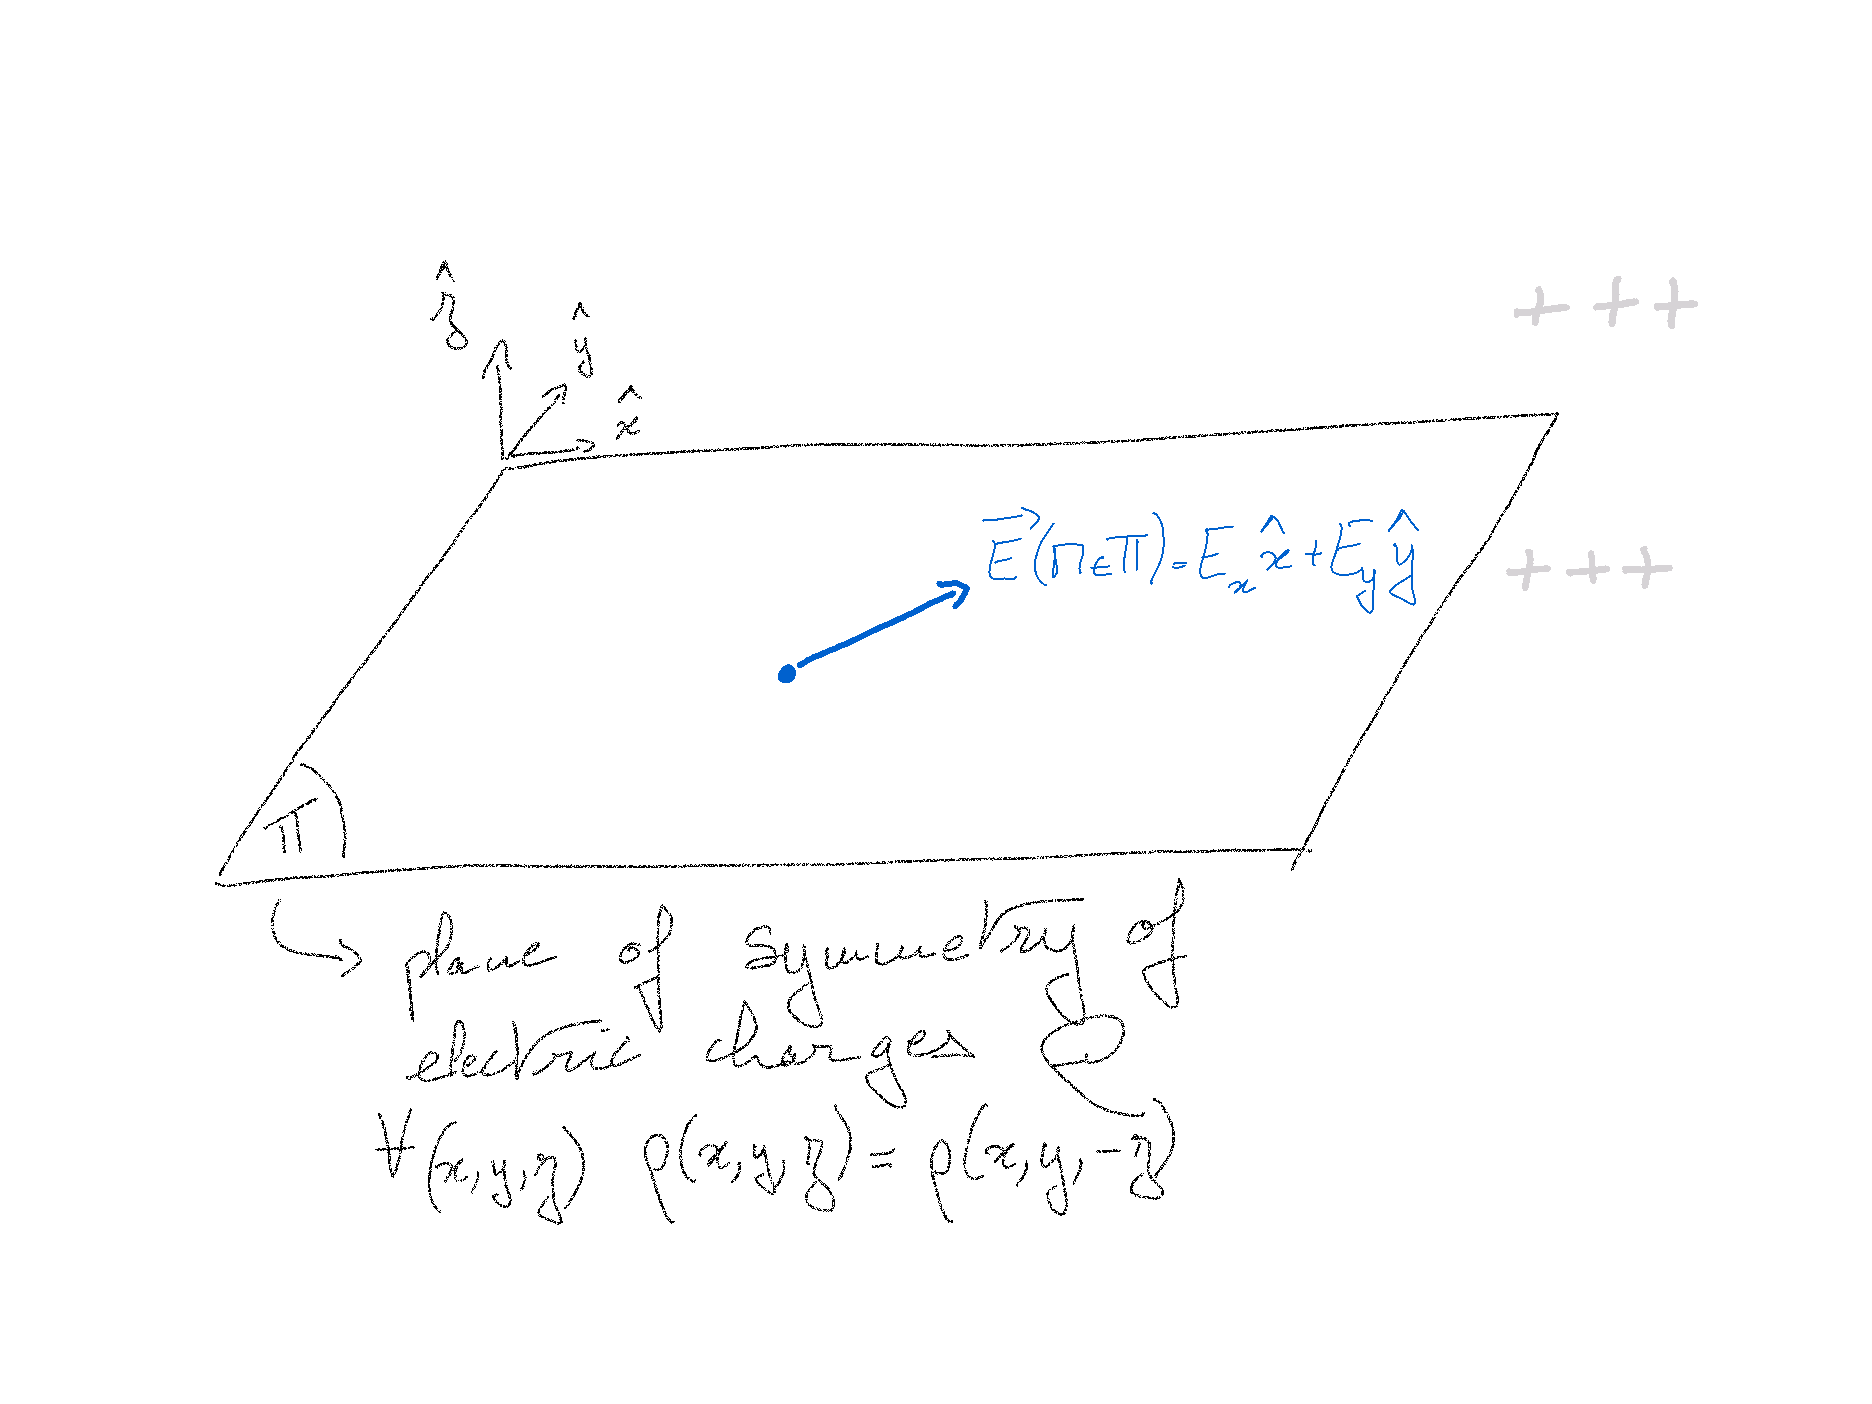 ẑ
ŷ
x̂
+ + +
E⃗(M∈Π) = E_x x̂ + E_y ŷ
+ + +
Π
plane of symmetry of
electric charges
∀(x,y,z) ρ(x,y,z) = ρ(x,y,-z)